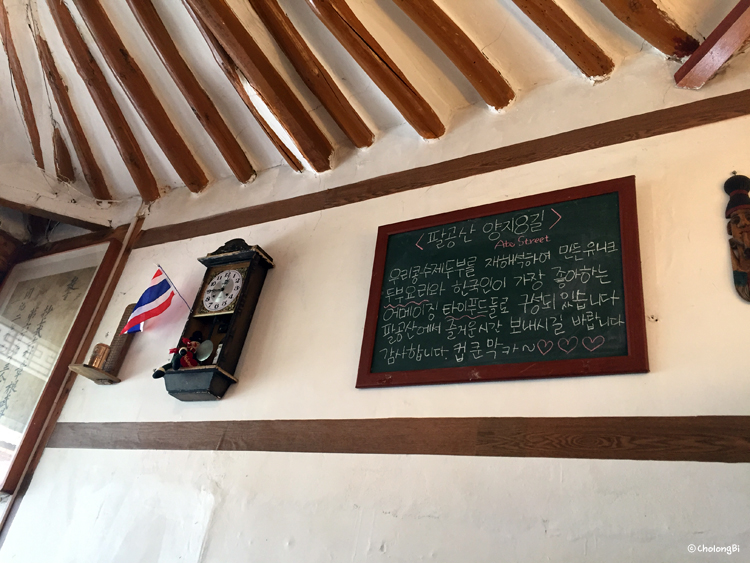 < 팔공산 양지8길 >
Ato Street
우리콩수제두부를 재해석하여 만든유니크
두부요리와 한국인이 가장 좋아하는
어메이징 타이푸드들로 구성되있습니다
팔공산에서 즐거운시간 보내시길 바랍니다
감사합니다. 컵쿤막카~♡♡♡
© CholongBi